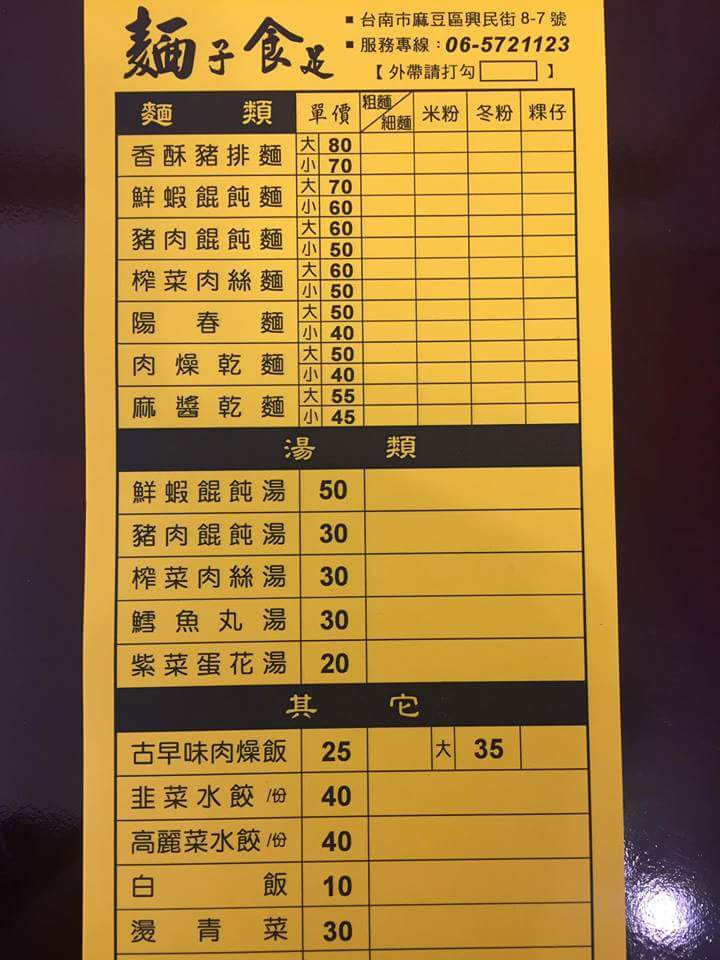 麵子食足
台南市麻豆區興民街 8-7 號
服務專線：06-5721123
【外帶請打勾 】
麵類 單價 粗麵/細麵 米粉 冬粉 粿仔
香酥豬排麵 大 80
小 70
鮮蝦餛飩麵 大 70
小 60
豬肉餛飩麵 大 60
小 50
榨菜肉絲麵 大 60
小 50
陽春麵 大 50
小 40
肉燥乾麵 大 50
小 40
麻醬乾麵 大 55
小 45
湯類
鮮蝦餛飩湯 50
豬肉餛飩湯 30
榨菜肉絲湯 30
鱈魚丸湯 30
紫菜蛋花湯 20
其它
古早味肉燥飯 25 大 35
韭菜水餃/份 40
高麗菜水餃/份 40
白飯 10
燙青菜 30